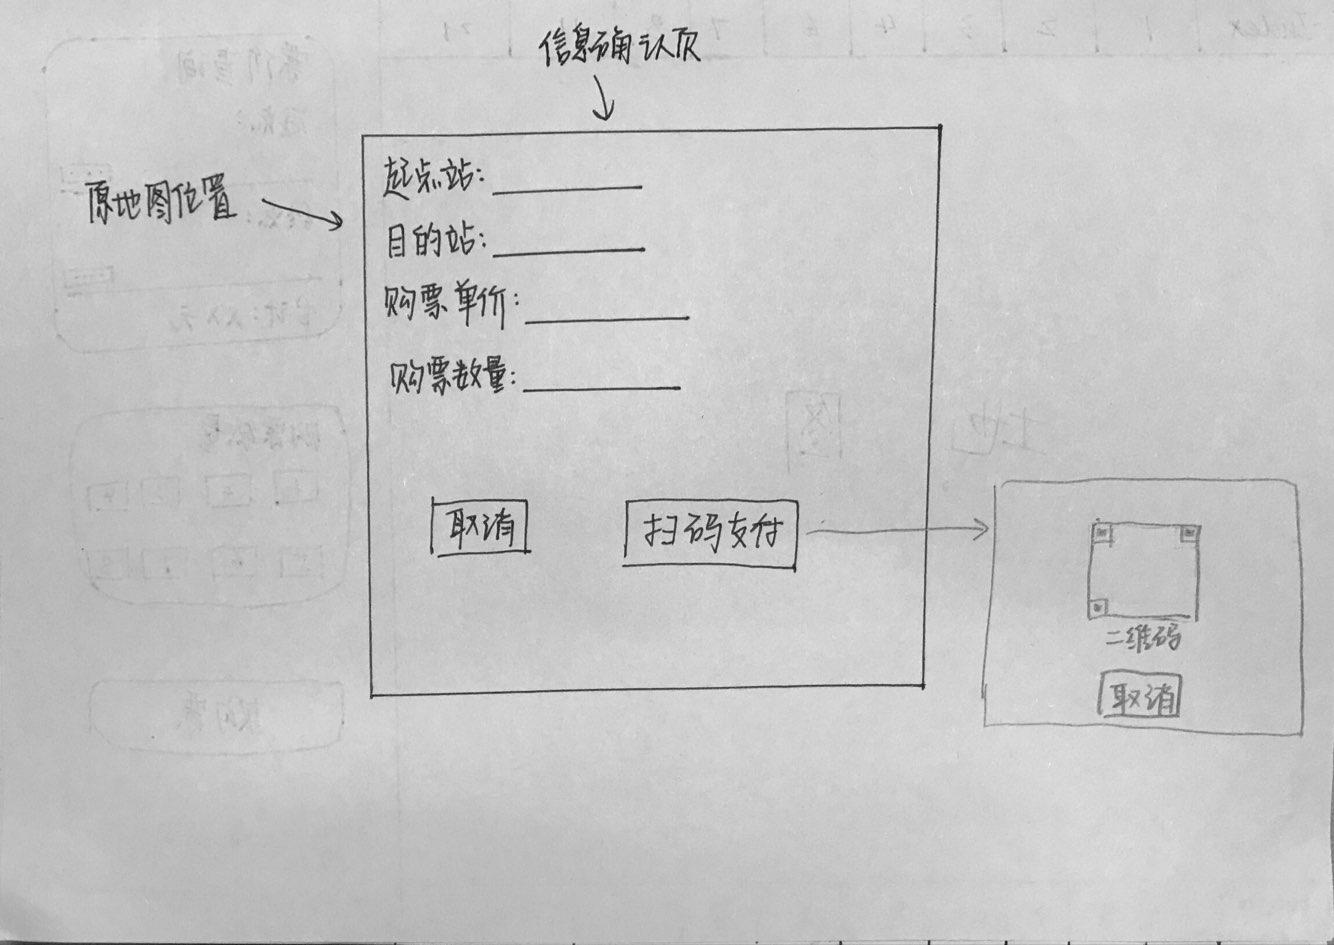 信息确认页
原地图位置
起点站:
目的站:
购票单价:
购票数量:
取消
扫码支付
二维码
取消